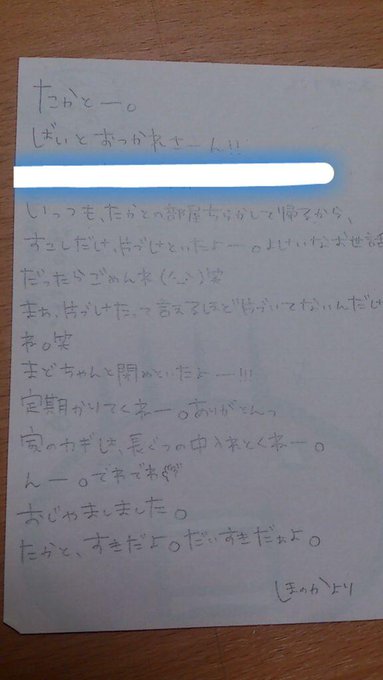 たかとー。
ばいとおつかれさーん!!
いっつも、たかとの部屋ちらかして帰るから、
すこしだけ、片づけといたよー。よけいなお世話
だったらごめんね(^_^;)笑
まぁ、片づけたって言えるほど片づいてないんだけど
ね。笑
まどちゃんと閉めといたよー!!!
定期かりてくねー。ありがとんっ
家のカギは、長ぐつの中いれとくねー。
んー。でわでわ
おじゃましました。
たかと、すきだよ。だいすきだぉよ。
しまのかより